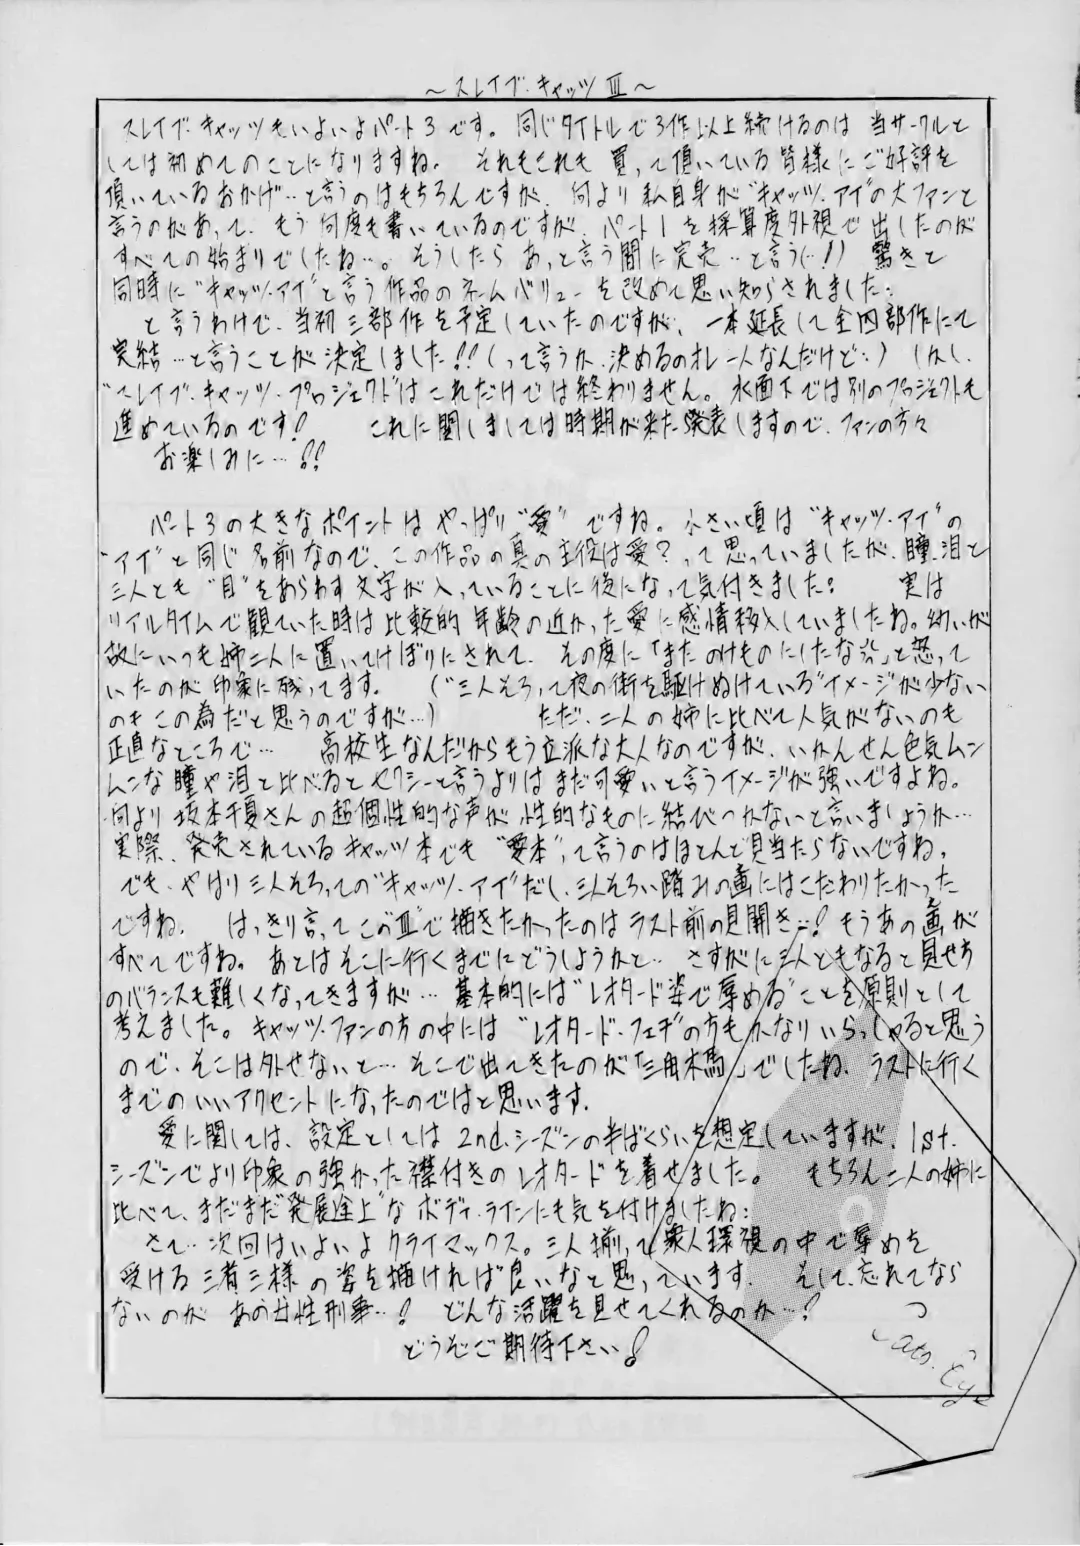 ～スレイブ・キャッツⅢ～
スレイブ・キャッツもいよいよパート3です。同じタイトルで3作以上続けるのは当サークルと
しては初めてのことになりますね。それもこれも買って頂いている皆様にご好評を
頂いているおかげ…と言うのはもちろんですが、何より私自身が"キャッツ・アイ"の大ファンと
言うのがあって、もう何度も書いているのですが、パート1を採算度外視で出したのが
すべての始まりでしたね…。そうしたらあっと言う間に完売…と言う(…!!)驚きと
同時に"キャッツ・アイ"と言う作品のネームバリューを改めて思い知らされました:
と言うわけで、当初三部作を予定していたのですが、一本延長して全四部作にて
実結…と言うことが決定しました!!(って言うか、決めるのオレ一人なんだけど…)しかし、
"スレイブ・キャッツ・プロジェクト"はこれだけでは終わりません。水面下では別のプロジェクトも
進めているのです!これに関しましては時期が来たら発表しますので、ファンの方々
お楽しみに…!!
パート3の大きなポイントはやっぱり"愛"ですね。小さい頃は"キャッツ・アイ"の
"アイ"と同じ名前なので、この作品の真の主役は愛?って思っていましたが、瞳、泪と
三人とも"目"をあらわす文字が入っていることに後になって気付きました:実は
リアルタイムで観ていた時は比較的年齢の近かった愛に感情移入していましたね。幼いが
故にいつも姉二人に置いてけぼりにされて、その度に「またのけものにしたな」と怒って
いたのが印象に残ってます。("三人そろって夜の街を駆けぬけている"イメージが少ない
のもこの為だと思うのですが…)ただ、二人の姉に比べて人気がないのも
正直なところで…高校生なんだからもう立派な大人なのですが、いかんせん色気ムン
ムンな瞳や泪と比べるとセクシーと言うよりはまだ可愛いと言うイメージが強いですよね。
何より坂本千夏さんの超個性的な声が性的なものに結びつかないと言いましょうか…
実際、発売されているキャッツ本でも"愛本"って言うのはほとんど見当たらないですね。
でも、やはり三人そろっての"キャッツ・アイ"だし、三人そろい踏みの画にはこだわりたかった
ですね。はっきり言ってこの"Ⅲ"で描きたかったのはラスト前の見開き…!もうあの画が
すべてですね。あとはそこに行くまでにどうしようかと…さすがに三人ともなると見せ方
のバランスも難しくなってきますが…基本的には"レオタード姿で辱める"ことを原則として
考えました。キャッツ・ファンの方の中には"レオタード・フェチ"の方もかなりいらっしゃると思う
ので、そこは外せないと…そこで出てきたのが「三角木馬」でしたね、ラストに行く
までのいいアクセントになったのではと思います。
愛に関しては、設定としては2nd.シーズンの半ばくらいを想定していますが、1st.
シーズンでより印象の強かった襟付きのレオタードを着せました。もちろん二人の姉に
比べて、まだまだ"発展途上"なボディ・ラインにも気を付けましたね:
さて…次回はいよいよクライマックス。三人揃って衆人環視の中で辱めを
受ける三者三様の姿を描ければ良いなと思っています。そして、忘れてなら
ないのがあの女性刑事…!どんな活躍を見せてくれるのか…?
どうぞご期待下さい!
Cats Eye